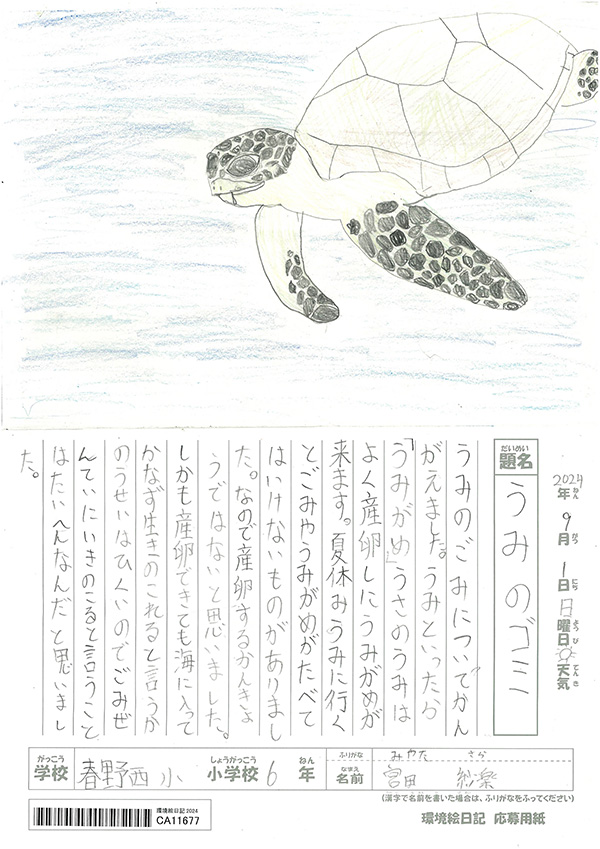 2024年ねん 9月がつ 1日にち 日曜日ようび 天気てんき
だいめい
題名
うみのゴミ
うみのごみについてかん
がえました。うみといったら
「うみがめ」うさのうみは
よく産卵しにうみがめが
来ます。夏休みうみに行く
とごみやうみがめがたべて
はいけないものがありまし
た。なので産卵するかんきょ
うではないと思いました。
しかも産卵できても海に入って
かなず生きのこれると言うか
のうせいはひくいのでごみぜ
んていにいきのこると言うこと
はたいへんなんだと思いまし
た。
がっこう
学校 春野西小 しょうがっこう
小学校 6 ねん
年
ふりがな みやた さら
なまえ
名前 宮田 紗楽
(漢字で名前を書いた場合は、ふりがなをふってください)
環境絵日記2024
CA11677
環境絵日記 応募用紙